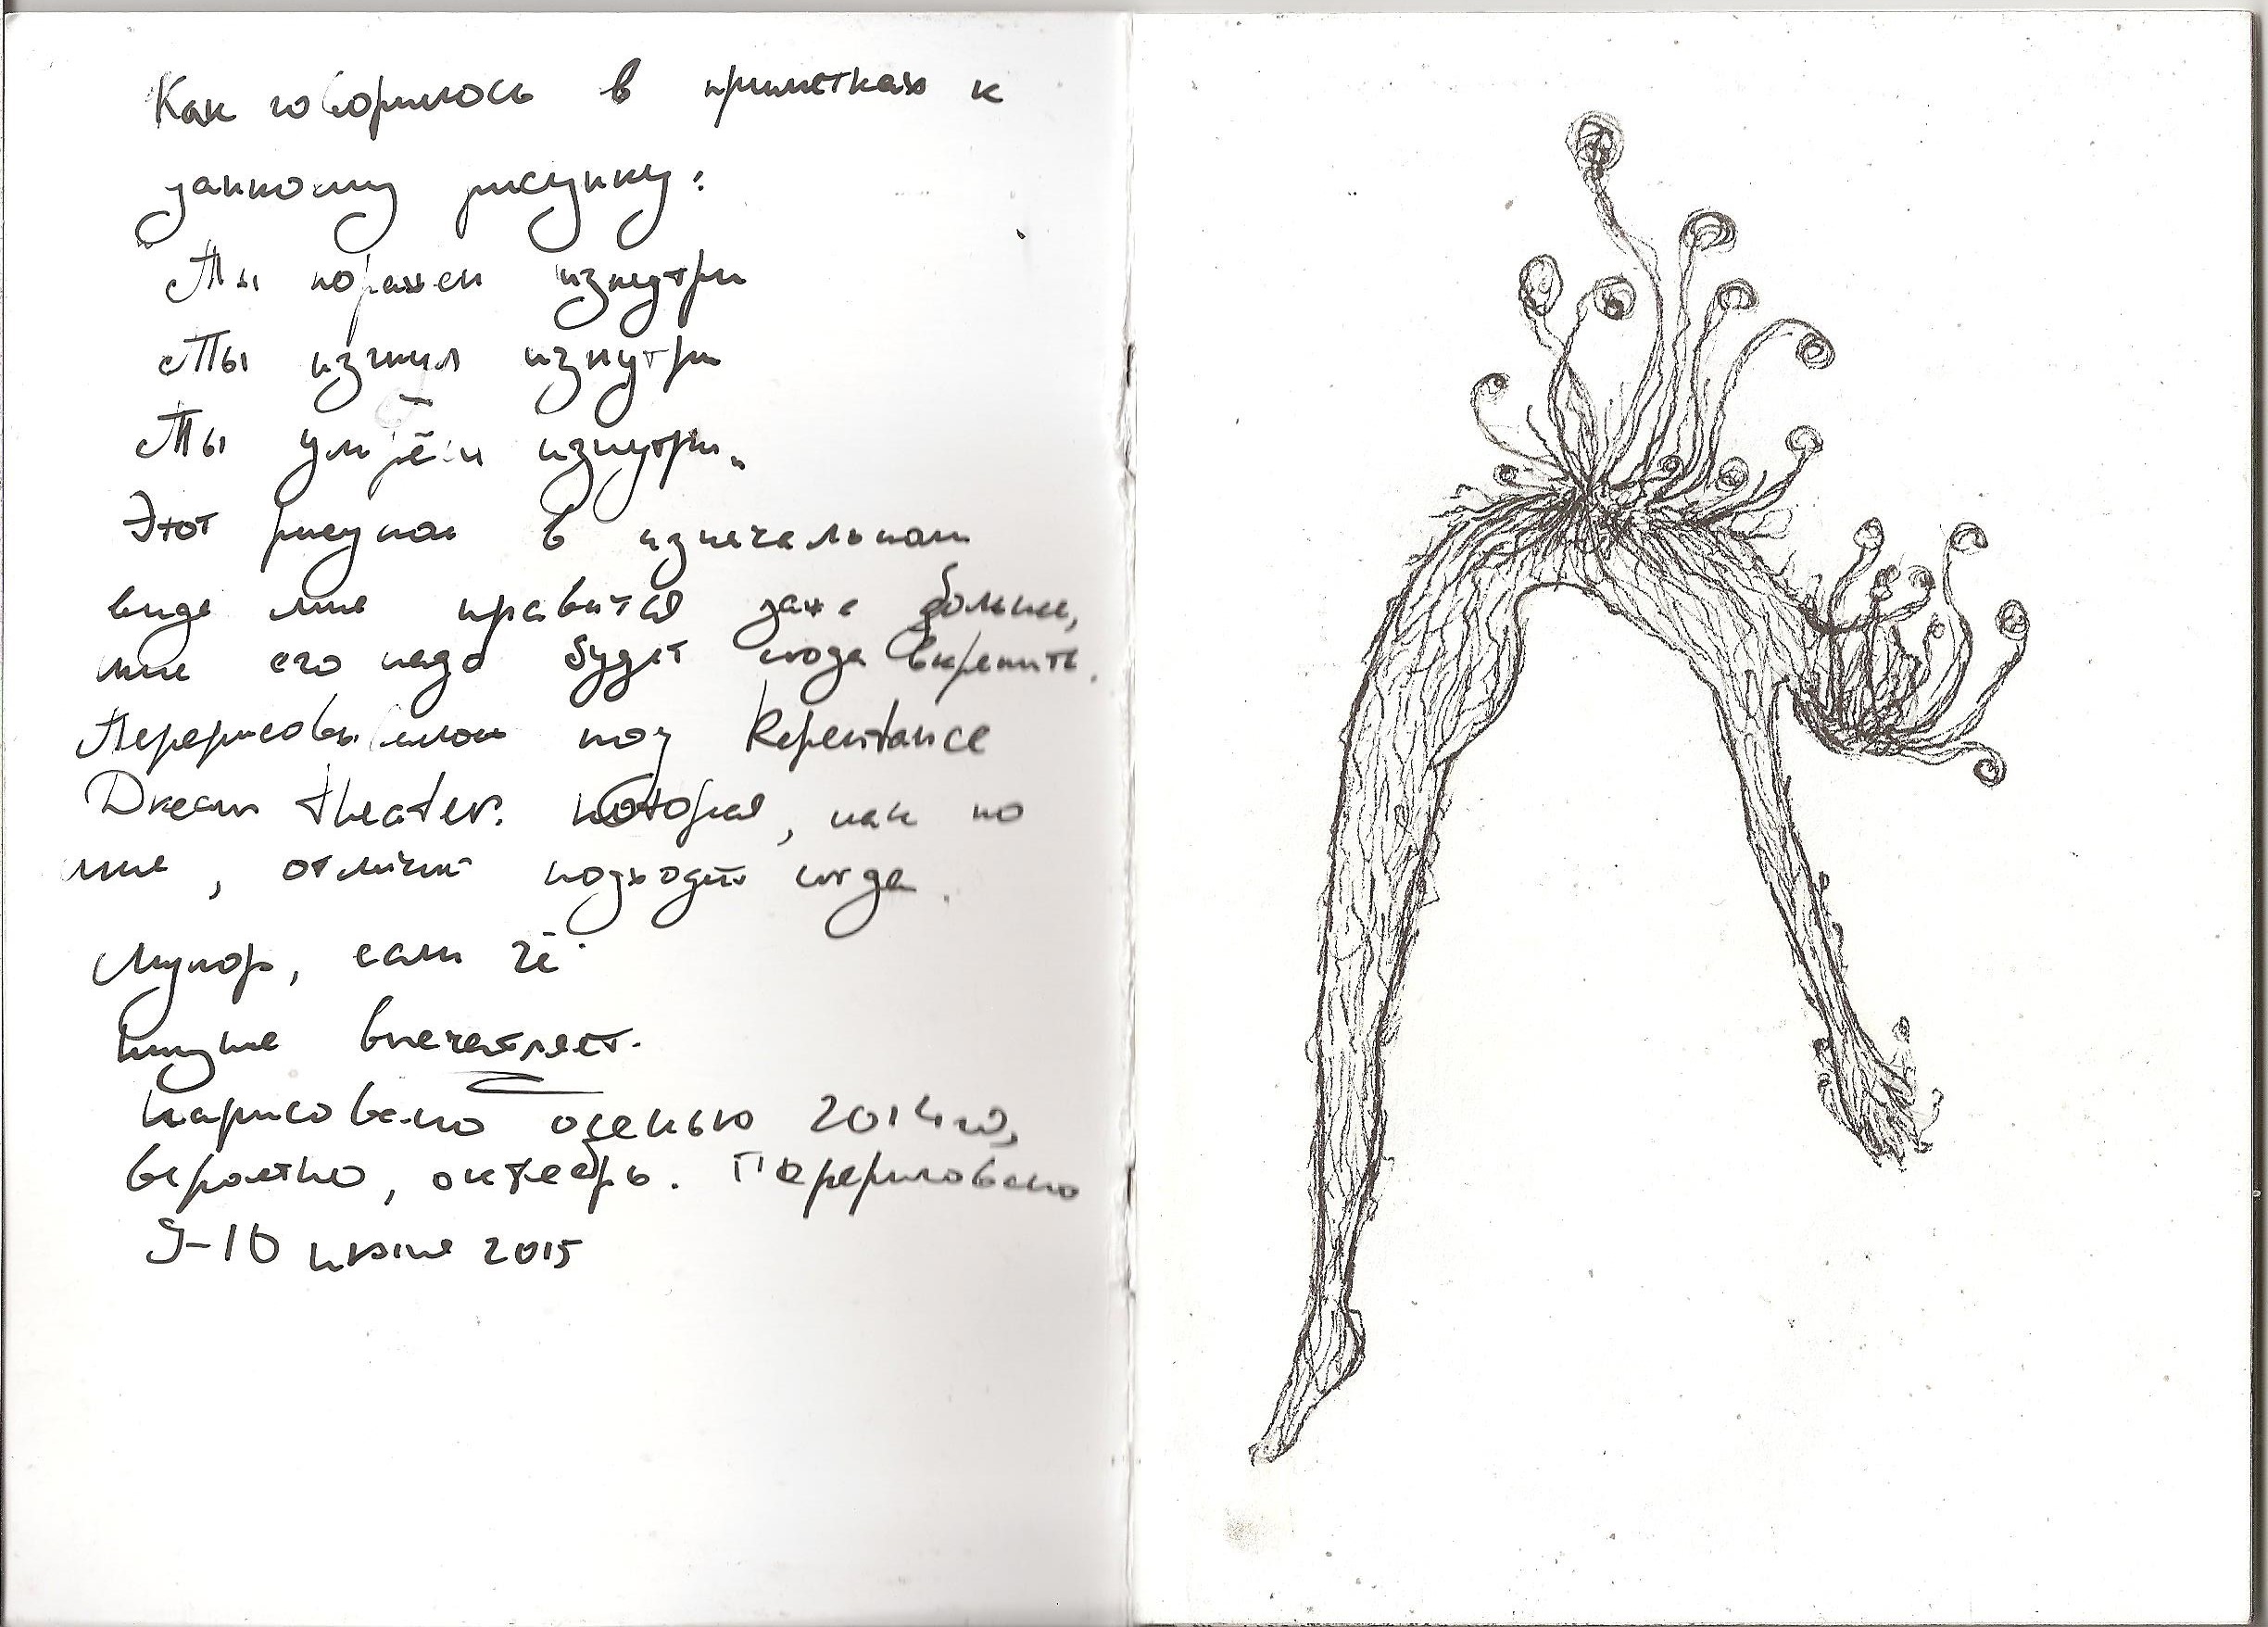 Как говорилось в приметках к
данному рисунку:
"Ты поражен изнутри
Ты изгнил изнутри
Ты умрёшь изнутри"
Этот рисунок в изначальном
виде мне нравится даже больше,
мне его надо будет сюда вкрепить.
Перерисовывалось под Repentance
Dream theater. Которая, как по
мне, отлично подходит сюда.
Мукор, если чё
впечатляет.
Нарисовано осенью 2014го,
вероятно, октябрь. Перерисовано
9-10 июня 2015